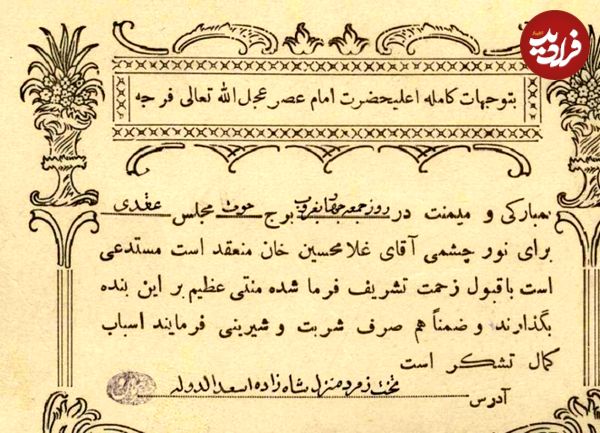 فرادید
اخبار
بتوجهات کامله اعلیحضرت امام عصر عجل الله تعالی فرجه
بمبارکی و میمنت در روز جمعه بغروب برج حوت مجلس عقدی
برای نور چشمی آقای غلامحسین خان منعقد است مستدعی
است با قبول زحمت تشریف فرما شده منتی عظیم بر این بنده
بگذارند و ضمناً هم صرف شربت و شیرینی فرمایند اسباب
کمال تشکر است
آدرس تخت زمرد منزل شاهزاده اسعدالدوله